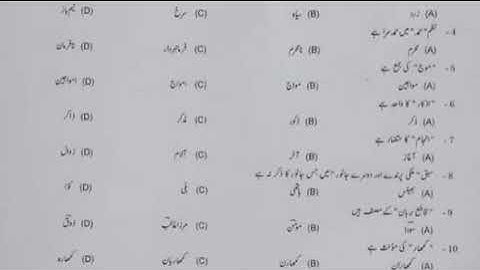 (A) زرد (B) سیاہ (C) سرخ (D)
4- نظم "حمد" میں حمد سرا ہے
(A) محرم (B) نامحرم (C) فرمانبردار (D) نافرمان
5- "موج" کی جمع ہے
(A) مواہین (B) مواج (C) امواج (D) امواہین
6- "اذکار" کا واحد ہے
(A) ذکر (B) ذکور (C) مذکر (D) ذاکر
7- "انجام" کا متضاد ہے
(A) آغاز (B) آخر (C) آلام (D) زوال
8- سبق "ملکی پرندے اور دوسرے جانور" میں جس جانور کا ذکر نہ ہے
(A) بھینس (B) ہاتھی (C) بلی (D) کوّا
9- "قاطع برہان" کے مصنف ہیں
(A) سودا (B) مومن (C) مرزا غالب (D) ذوق
10- "کمھار" کی مؤنث ہے
(A) کمھاران (B) کمھارن (C) کمھاریان (D) کمھارہ